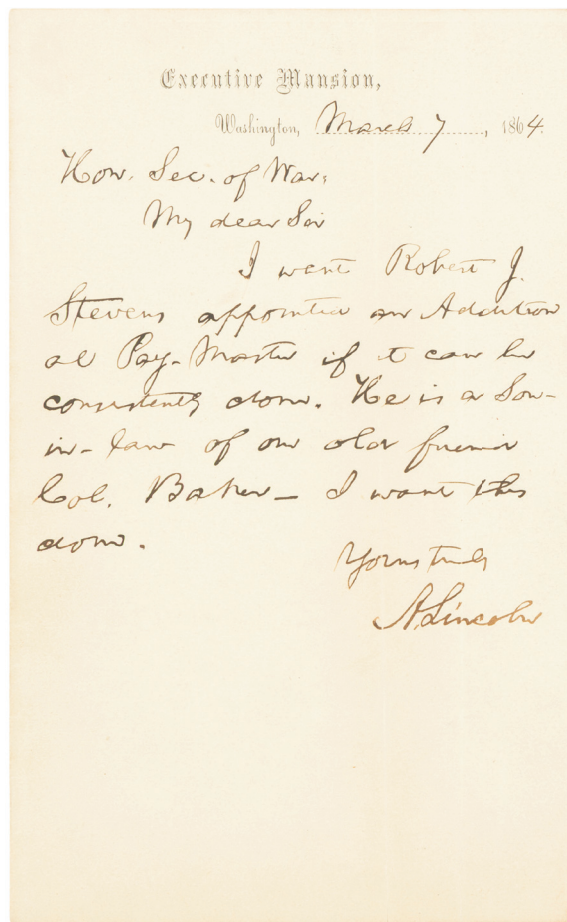 Executive Mansion,
Washington, March 7, 1864.
Hon. Sec. of War,
My dear Sir
I want Robert J.
Stevens appointed an Addition
al Pay-Master if it can be
consistently done. He is a Son-
in-law of our old friend
Col. Baker— I want this
done.
Yours truly
A. Lincoln